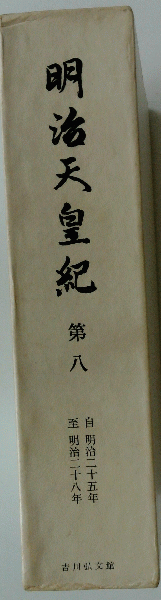 明治天皇紀
第八
自 明治二十五年
至 明治二十八年
吉川弘文館